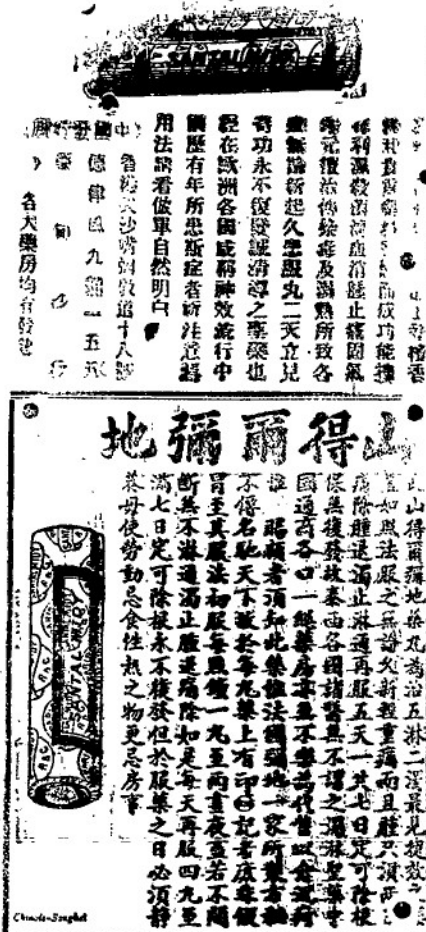 SANTAL MIDY
功能擅
利濕殺菌消炎消腫止痛固氣
傳染毒及濕熱所致各
無論新起久患服丸二天立見
奇功永不復發誠清導之聖藥也
經在歐洲各國咸稱神效流行中
國歷有年所患斯症者祈注意焉
用法請看倣單自然明白
中國發行所
香港尖沙嘴漢口道十八號
德律風九
各大藥房均有發售
山得爾彌地
此山得爾彌地藥丸為治五淋二濁最見捷效之
如照法服之無論久新輕重痛而且腫只須兩
痛除腫退濁止淋通再服五天一共七日定可除根
保無復發故泰西各國諸醫無不謂之濁淋聖藥中
國通商各口一經藥房無不樂為代售以
賜顧者須知此藥惟法國彌地一家所
名馳天下故於每丸藥上有印記者庶無假
冒至其服法初服每點鐘一丸至兩晝夜至若不間
斷無不淋通濁止腫退痛除如是每天再服四丸至
滿七日定可除根永不復發但於服藥之日必須靜
養毋使勞動忌食性熱之物更忌房事
SANTAL MIDY
Chinois-Songhet